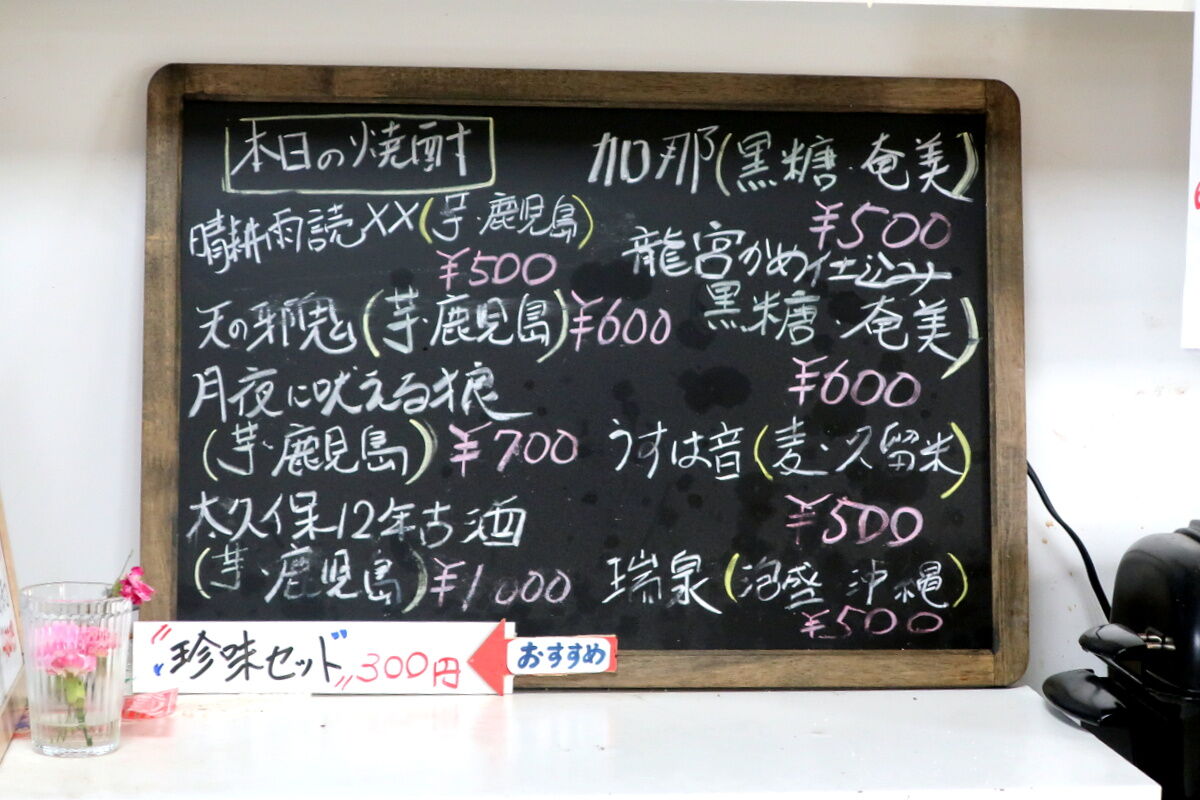 本日の焼酎
晴耕雨読XX(芋・鹿児島)
¥500
天の邪鬼と(芋・鹿児島)¥600
月夜に吠える狼
(芋・鹿児島)¥700
大久保12年古酒
(芋・鹿児島)¥1000
加那(黒糖・奄美)
¥500
龍宮かめ仕込み
黒糖・奄美)
¥600
うすは音(麦・久留米)
¥500
瑞泉(泡盛 沖縄)
¥500
"珍味セット" 300円
おすすめ